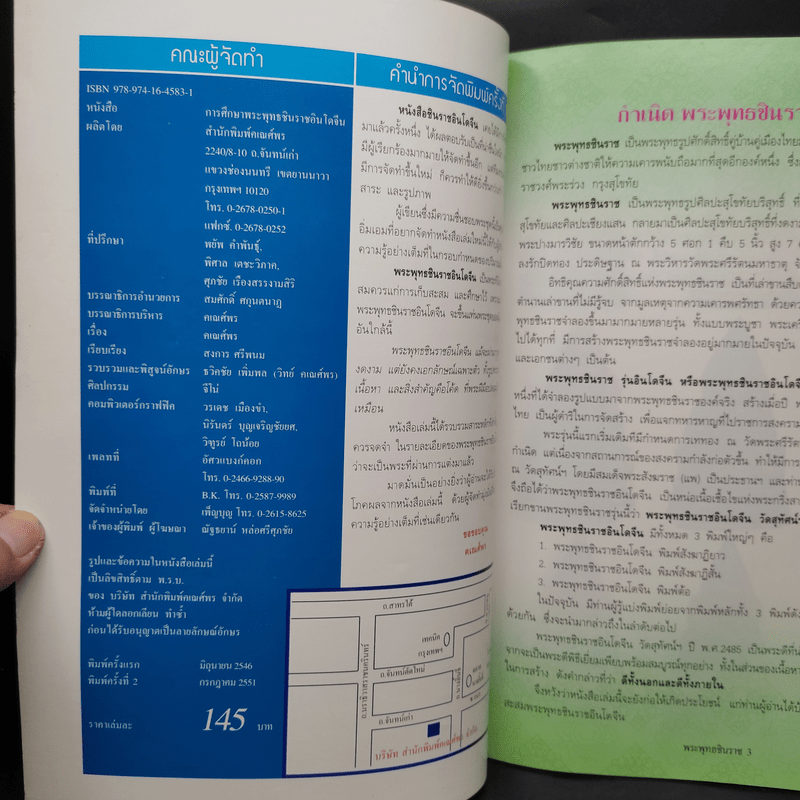 คณะผู้จัดทำ
ISBN 978-974-16-4583-1
หนังสือ การศึกษาพระพุทธชินราชอินโดจีน
ผลิตโดย สำนักพิมพ์คเณศ์พร
2240/8-10 ถ.จันทน์เก่า
แขวงช่องนนทรี เขตยานนาวา
กรุงเทพฯ 10120
โทร. 0-2678-0250-1
แฟกซ์. 0-2678-0252
ที่ปรึกษา พยัพ คำพันธุ์,
พิศาล เตชะวิภาค,
ศุภชัย เรืองสรรงามสิริ
บรรณาธิการอำนวยการ สมศักดิ์ ศกุนตนาฏ
บรรณาธิการบริหาร คเณศ์พร
เรื่อง คเณศ์พร
เรียบเรียง สงการ ศรีพนม
รวบรวมและพิสูจน์อักษร ธวัคชัย เพิ่มพล (วิทย์ คเณศ์พร)
ศิลปกรรม จีโน่
คอมพิวเตอร์กราฟฟิค วรเดช เมืองขำ,
นิรันดร์ บุญเจริญชัยยศ,
วิฑูรย์ โถน้อย
เพลทที่ อัศวแบงค์คอก
โทร. 0-2466-9288-90
พิมพ์ที่ B.K. โทร. 0-2587-9989
จัดจำหน่ายโดย เพ็ญบุญ โทร. 0-2615-8625
เจ้าของผู้พิมพ์ ผู้โฆษณา ณัฐธยาน์ หล่อศรีศุภชัย
รูปและข้อความในหนังสือเล่มนี้
เป็นลิขสิทธิ์ตาม พ.ร.บ.
ของ บริษัท สำนักพิมพ์คเณศ์พร จำกัด
ห้ามผู้ใดลอกเลียน ทำซ้ำ
ก่อนได้รับอนุญาตเป็นลายลักษณ์อักษร
พิมพ์ครั้งแรก มิถุนายน 2546
พิมพ์ครั้งที่ 2 กรกฎาคม 2551
ราคาเล่มละ 145 บาท
คำนำการจัดพิมพ์ครั้งที่
หนังสือชินราชอินโดจีน เคยได้
มาแล้วครั้งหนึ่ง ได้ผลตอบรับเป็นที่น่า
มีผู้เรียกร้องมากมายให้จัดทำขึ้นอีก
มีการจัดทำขึ้นใหม่ ก็ควรทำให้ดียิ่งขึ้นกว่า
สาระ และรูปภาพ
ผู้เขียนซึ่งมีความชื่นชอบพระชุดนี้
อิ่มเอมที่อยากจัดทำหนังสือเล่มใหม่นี้ให้กับผู้
ความรู้อย่างเต็มที่ในกรอบกำหนดของ
พระพุทธชินราชอินโดจีน เป็นพระ
สมควรแก่การเก็บสะสม และศึกษาไว้
พระพุทธชินราชอินโดจีน จะขึ้นแท่นพระ
อันใกล้นี้
พระพุทธชินราชอินโดจีน แม้จะ
งดงาม แต่ยังคงเอกลักษณ์เฉพาะตัว
เนื้อหา และสิ่งสำคัญคือโค้ด ที่พระมีน้อย
เหมือน
หนังสือเล่มนี้ได้รวบรวมสาระหลัก
ควรจดจำ ในรายละเอียดของพระพุทธชินราช
ว่าจะเป็นพระที่ผ่านการแต่งมาแล้ว
มาดมั่นเป็นอย่างยิ่งว่าผู้อ่านจะได้
โภคผลจากหนังสือเล่มนี้ ด้วยผู้จัดทำ
ความรู้อย่างเต็มที่เช่นเดียวกัน
ขอขอบคุณ
คเณศ์พร
ถ.สาทรใต้
เทคนิค
กรุงเทพฯ
ถ.จันทน์ตัดใหม่
ถ.นราธิวาสราชนครินทร์
ถ.จันทน์เก่า
บริษัท สำนักพิมพ์คเณศ์พร จำกัด
กำเนิด พระพุทธชินรา
พระพุทธชินราช เป็นพระพุทธรูปศักดิ์สิทธิ์คู่บ้านคู่เมืองไทย
ชาวไทยชาวต่างชาติให้ความเคารพนับถือมากที่สุดอีกองค์หนึ่ง ซึ่ง
ราชวงศ์พระร่วง กรุงสุโขทัย
พระพุทธชินราช เป็นพระพุทธรูปศิลปะสุโขทัยบริสุทธิ์ ที่
สุโขทัยและศิลปะเชียงแสน กลายมาเป็นศิลปะสุโขทัยบริสุทธิ์ที่งดงาม
พระปางมารวิชัย ขนาดหน้าตักกว้าง 5 ศอก 1 คืบ 5 นิ้ว สูง 7
ลงรักปิดทอง ประดิษฐาน ณ พระวิหารวัดพระศรีรัตนมหาธาตุ
อิทธิคุณความศักดิ์สิทธิ์แห่งพระพุทธชินราช เป็นที่เล่าขานสืบ
ตำนานเล่าขานที่ไม่มีรู้จบ จากมูลเหตุจากความเคารพศรัทธา ด้วยคว
พุทธชินราชจำลองขึ้นมามากมายหลายรุ่น ทั้งแบบพระบูชา พระเครื
ไปได้ทุกที่ มีการสร้างพระพุทธชินราชจำลองอยู่มากมายในปัจจุบัน
และเอกชนต่างๆ เป็นต้น
พระพุทธชินราช รุ่นอินโดจีน หรือพระพุทธชินราชอินโดจีน
หนึ่งที่ได้จำลองรูปแบบมาจากพระพุทธชินราชองค์จริง สร้างเมื่อปี พ
ไทย เป็นผู้ดำริในการจัดสร้าง เพื่อแจกทหารหาญที่ไปราชการสงคราม
พระรุ่นนี้แรกเริ่มเดิมที่มีกำหนดการเททอง ณ วัดพระศรีรั
กำเนิด แต่เนื่องจากสถานการณ์ของสงครามกำลังก่อตัวขึ้น ทำให้มีการ
ณ วัดสุทัศน์ฯ โดยมีสมเด็จพระสังฆราช (แพ) เป็นประธานฯ และท่าน
จึงถือได้ว่าพระพุทธชินราชอินโดจีน เป็นหน่อเนื้อเชื้อไขแห่งพระกริ่งสาย
เรียกขานพระพุทธชินราชรุ่นนี้ว่า พระพุทธชินราชอินโดจีน วัดสุทัศน์ฯ
พระพุทธชินราชอินโดจีน มีทั้งหมด 3 พิมพ์ใหญ่ๆ คือ
1. พระพุทธชินราชอินโดจีน พิมพ์สังฆาฏิยาว
2. พระพุทธชินราชอินโดจีน พิมพ์สังฆาฏิสั้น
3. พระพุทธชินราชอินโดจีน พิมพ์ต้อ
ในปัจจุบัน มีท่านผู้รู้แบ่งพิมพ์ย่อยจากพิมพ์หลักทั้ง 3 พิมพ์ดัง
ด้วยกัน ซึ่งจะนำมากล่าวถึงในลำดับต่อไป
พระพุทธชินราชอินโดจีน วัดสุทัศน์ฯ ปี พ.ศ.2485 เป็นพระดีที่น
จากจะเป็นพระดีพิธีเยี่ยมเพียบพร้อมสมบูรณ์ทุกอย่าง ทั้งในส่วนของเนื้อหา
ในการสร้าง ดังคำกล่าวที่ว่า ดีทั้งนอกและดีทั้งภายใน
จึงหวังว่าหนังสือเล่มนี้จะยังก่อให้เกิดประโยชน์ แก่ท่านผู้อ่านได้
สะสมพระพุทธชินราชอินโดจีน
พระพุทธชินราช 3